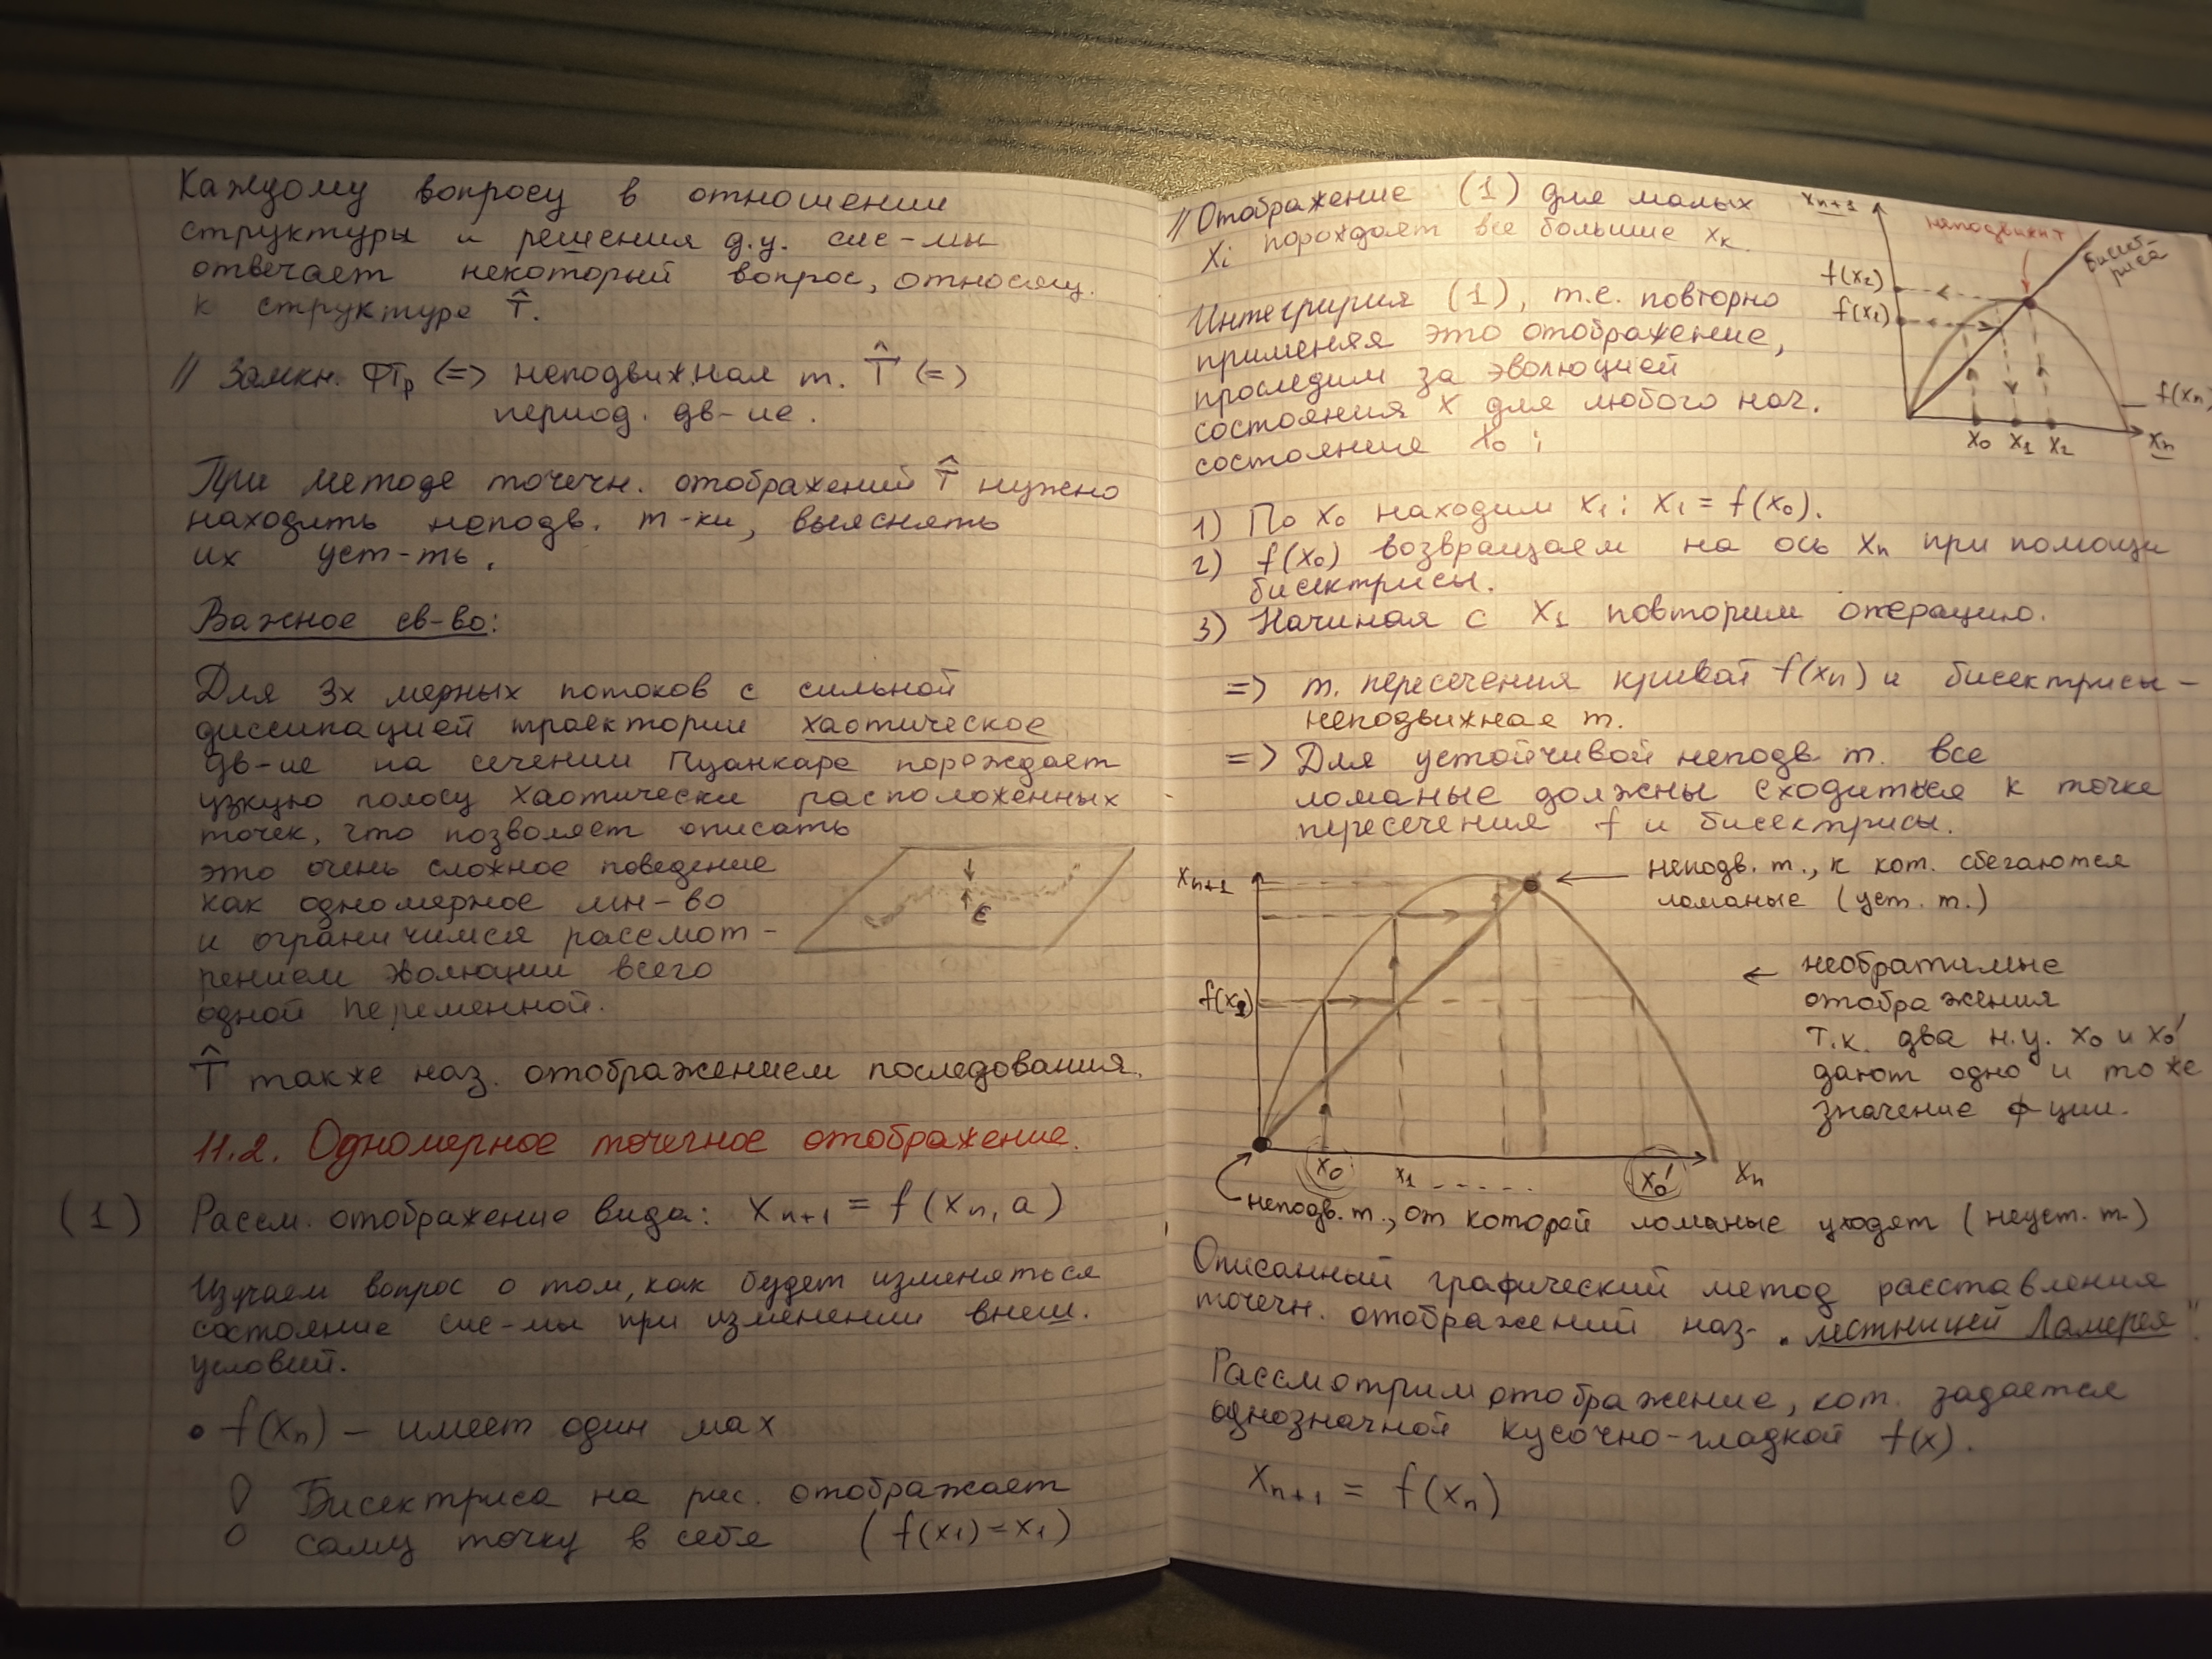 Каждому вопросу в отношении
структуры и решения д.у. сис-мы
отвечает некоторый вопрос, относящ.
к структуре T̂.
// Замкн. ФТр (=> неподвижная т. T̂ (=>
период. дв-ие.
При методе точечн. отображений T̂ нужно
находить неподв. т-ки, выяснять
их уст-ть.
Важное св-во:
Для 3х мерных потоков с сильной
диссипацией траектории хаотическое
дв-ие на сечении Пуанкаре пораждает
узкую полосу хаотически расположенных
точек, что позволяет описать
это очень сложное поведение
как одномерное мн-во
и ограничимся рассмот-
рением эволюции всего
одной переменной.
ε
T̂ также наз. отображением последования.
11.2. Одномерное точечное отображение.
(1) Рассм. отображение вида: Xn+1 = f(xn, a)
Изучаем вопрос о том, как будет изменяться
состояние сис-мы при изменении внеш.
условий.
• f(xn) – имеет один max
Бисектриса на рис. отображает
саму точку в себя (f(x1)=x1)
// Отображение (1) для малых
Xi порождает все большие xk.
Интегрируя (1), т.е. повторно
применяя это отображение,
проследим за эволюцией
состояния X для любого нач.
состояние X0 :
Xn+1
неподвижн т
бисект-
риса
f(x2)
f(x1)
f(xn)
X0 X1 X2 Xn
1) По X0 находим X1: X1 = f(X0).
2) f(X0) возвращаем на ось Xn при помощи
бисектрисы.
3) Начиная с X1 повторим операцию.
=> т. пересечения кривой f(xn) и бисектрисы –
неподвижная т.
=> Для устойчивой неподв т. все
ломаные должны сходиться к точке
пересечения f и бисектрисы.
Xn+1
неподв. т., к кот. сбегаются
ломаные (уст. т.)
f(x1)
← необратимые
отображения
т.к. два н.у. X0 и X0'
дают одно и тоже
значение ф-ции.
X0 X1 - - - - - X0' Xn
неподв. т., от которой ломаные уходят (неуст. т.)
Описанный графический метод расставления
точечн. отображений наз- „лестницей Ламерея".
Рассмотрим отображение, кот. задается
однозначной кусочно-гладкой f(x).
Xn+1 = f(xn)